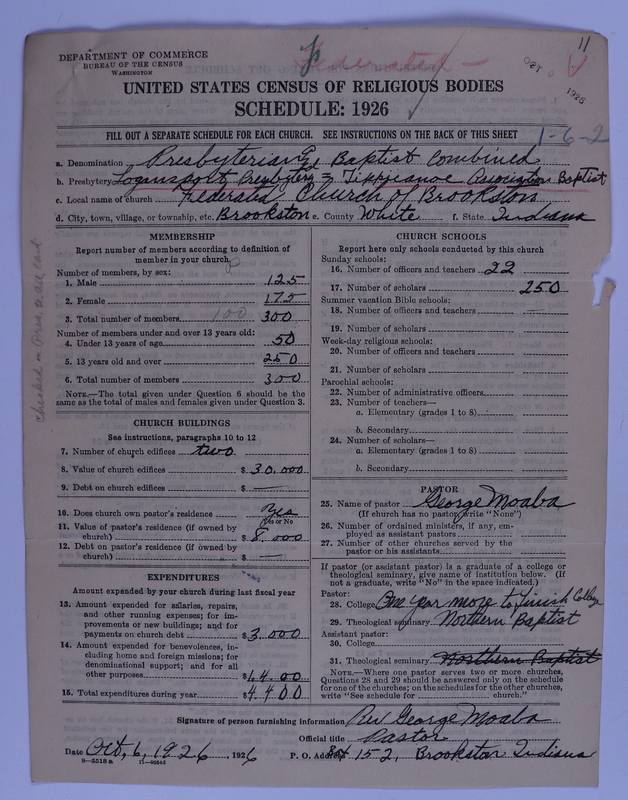 Federated —
11
DEPARTMENT OF COMMERCE
BUREAU OF THE CENSUS
WASHINGTON
OCT 1926
UNITED STATES CENSUS OF RELIGIOUS BODIES
SCHEDULE: 1926
FILL OUT A SEPARATE SCHEDULE FOR EACH CHURCH. SEE INSTRUCTIONS ON THE BACK OF THIS SHEET
1-6-2
a. Denomination Presbyterian & Baptist Combined
b. Presbytery Logansport Presbytery = Tippicanoe Association Baptist
c. Local name of church Federated Church of Brookston
d. City, town, village, or township, etc. Brookston e. County White f. State Indiana
MEMBERSHIP
Report number of members according to definition of member in your church.
Number of members, by sex:
1. Male 125
2. Female 175
3. Total number of members 100 300
Number of members under and over 13 years old:
4. Under 13 years of age 50
5. 13 years old and over 250
6. Total number of members 300
NOTE.—The total given under Question 6 should be the same as the total of males and females given under Question 3.
CHURCH BUILDINGS
See instructions, paragraphs 10 to 12
7. Number of church edifices two
8. Value of church edifices $ 30.000
9. Debt on church edifices $ —
10. Does church own pastor's residence? Yes
Yes or No
11. Value of pastor's residence (if owned by church) $ 8.000
12. Debt on pastor's residence (if owned by church) $ —
EXPENDITURES
Amount expended by your church during last fiscal year
13. Amount expended for salaries, repairs, and other running expenses; for improvements or new buildings; and for payments on church debt $ 3.000
14. Amount expended for benevolences, including home and foreign missions; for denominational support; and for all other purposes $ 14.00
15. Total expenditures during year $ 4400
CHURCH SCHOOLS
Report here only schools conducted by this church
Sunday schools:
16. Number of officers and teachers 22
17. Number of scholars 250
Summer vacation Bible schools:
18. Number of officers and teachers
19. Number of scholars
Week-day religious schools:
20. Number of officers and teachers
21. Number of scholars
Parochial schools:
22. Number of administrative officers
23. Number of teachers—
a. Elementary (grades 1 to 8)
b. Secondary
24. Number of scholars—
a. Elementary (grades 1 to 8)
b. Secondary
PASTOR
25. Name of pastor George Moaba
(If church has no pastor, write "None")
26. Number of ordained ministers, if any, employed as assistant pastors
27. Number of other churches served by the pastor or his assistants
If pastor (or assistant pastor) is a graduate of a college or theological seminary, give name of institution below. (If not a graduate, write "No" in the space indicated.)
Pastor:
28. College One year more to finish College
29. Theological seminary Northern Baptist
Assistant pastor:
30. College
31. Theological seminary Northern Baptist
NOTE.—Where one pastor serves two or more churches, Questions 28 and 29 should be answered only on the schedule for one of the churches; on the schedules for the other churches, write "See schedule for church."
Signature of person furnishing information Rev George Moaba
Official title Pastor
Date Oct, 6, 1926, 1926 P. O. Address Box 152, Brookston Indiana
8—5518a 11—